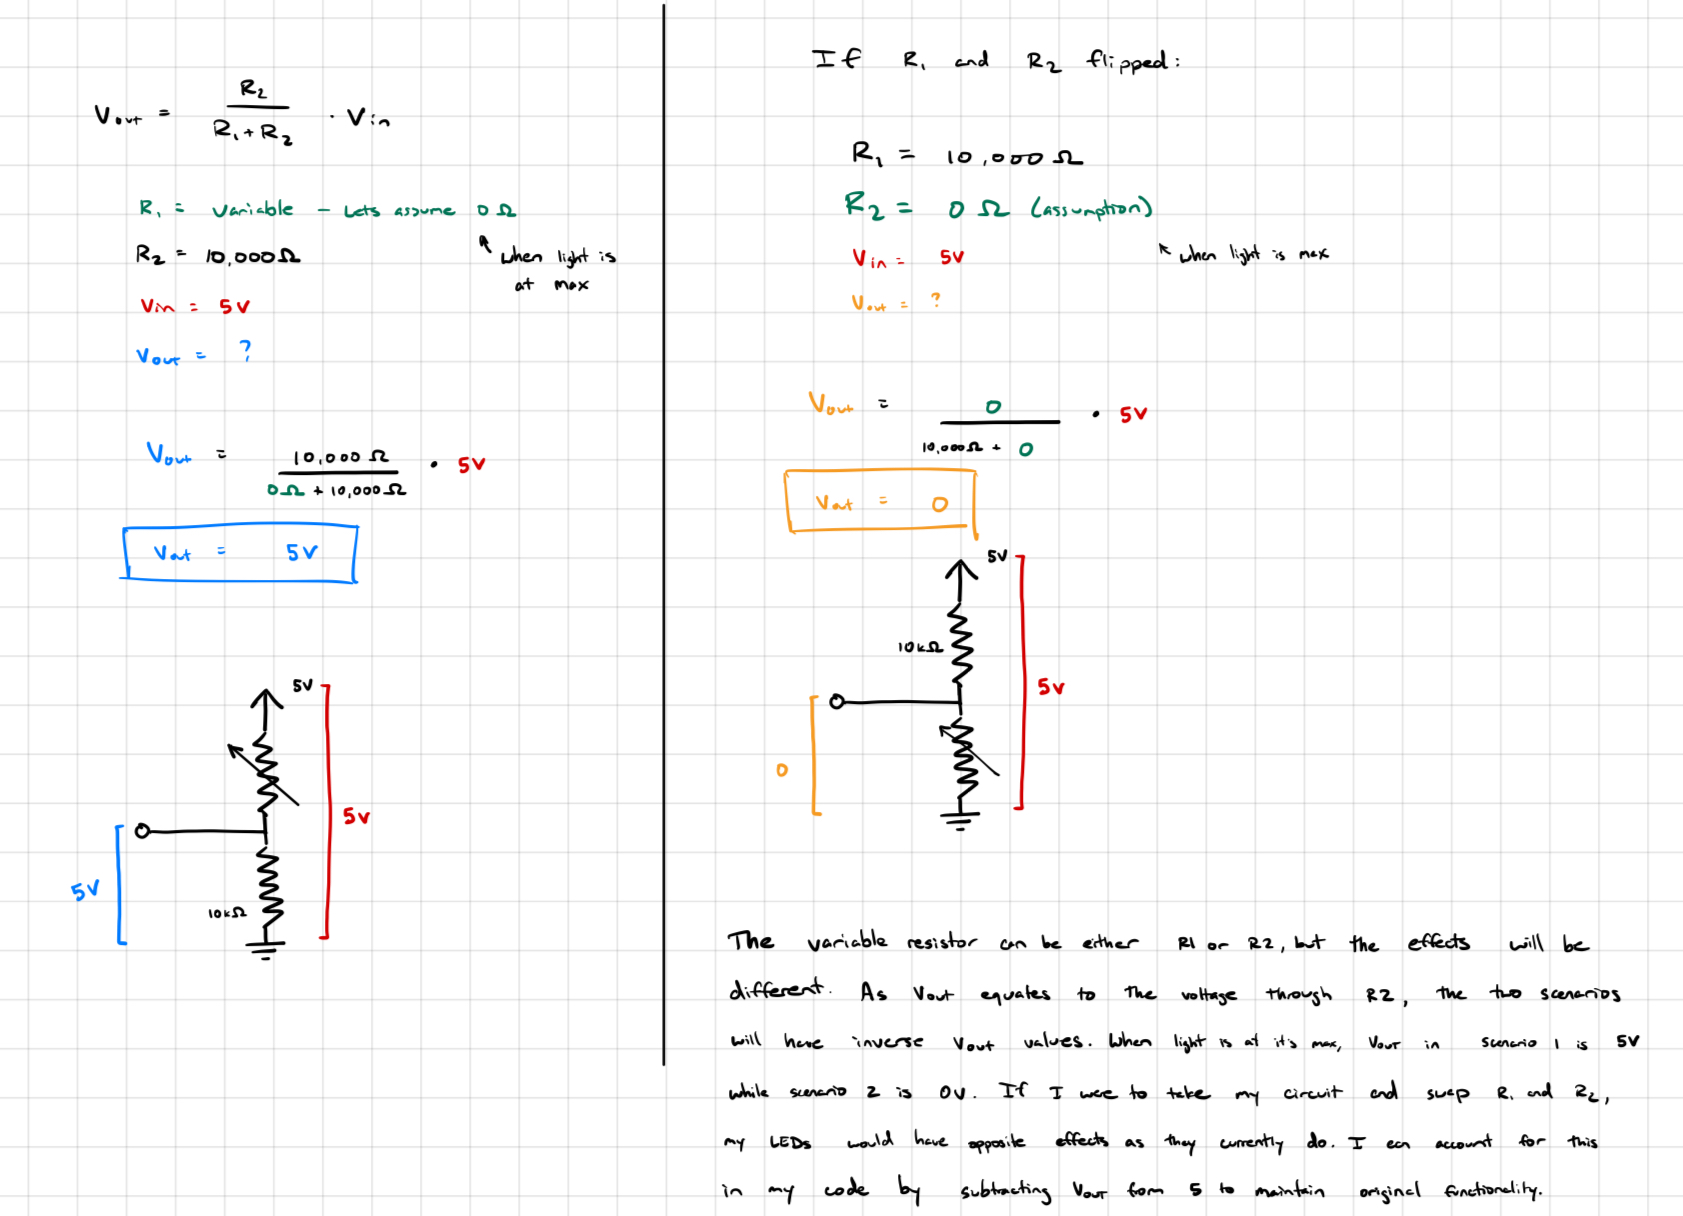 Vout = R2 / R1 + R2 · Vin
R1 = Variable - Lets assume 0 Ω
R2 = 10,000 Ω
when light is
at max
Vin = 5V
Vout = ?
Vout = 10,000 Ω / 0Ω + 10,000 Ω · 5V
Vout = 5V
5V
5V
5V
10kΩ
If R1 and R2 flipped:
R1 = 10,000 Ω
R2 = 0 Ω (assumption)
when light is max
Vin = 5V
Vout = ?
Vout = 0 / 10,000Ω + 0 · 5V
Vout = 0
5V
10kΩ
5V
0
The variable resistor can be either R1 or R2, but the effects will be
different. As Vout equates to the voltage through R2, the two scenarios
will have inverse Vout values. When light is at it's max, Vout in scenario 1 is 5V
while scenario 2 is 0V. If I were to take my circuit and swap R1 and R2,
my LEDs would have opposite effects as they currently do. I can account for this
in my code by subtracting Vout from 5 to maintain original functionality.